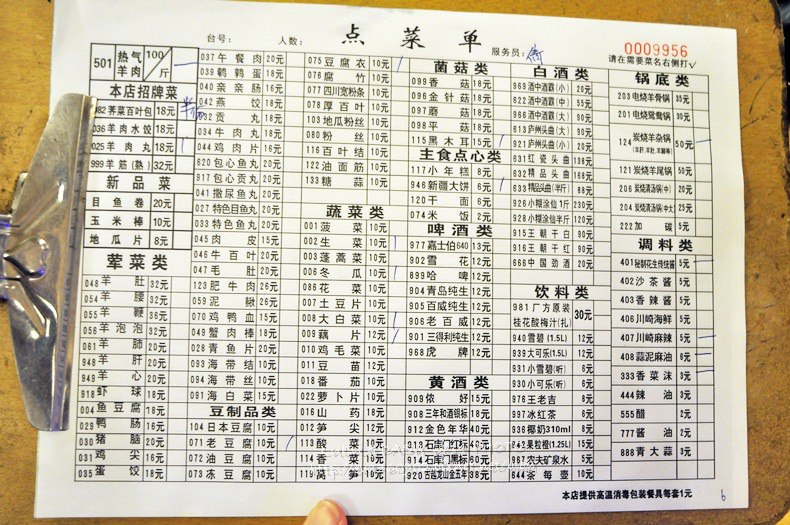 台号: 人数: 点菜单 服务员: 0009956
请在需要菜名右侧打√
501 热气羊肉 100/斤
本店招牌菜
082 荠菜百叶包 18元
036 羊肉水饺 18元
025 羊肉串 1元
999 羊筋(熟) 32元
新品菜
目鱼卷 20元
玉米棒 10元
地瓜片 8元
荤菜类
048 羊肚 32元
054 羊腰 32元
055 羊鞭 36元
056 羊泡泡 32元
061 羊肺 20元
948 羊肝 20元
949 羊心 20元
918 虾球 18元
004 鱼豆腐 18元
029 鸭肠 18元
030 猪脑
031 鸡尖 16元
035 蛋饺 18元
037 午餐肉 20元
039 鹌鹑蛋 18元
040 亲亲肠 16元
042 燕饺 20元
032 贡丸 18元
034 牛肉丸 18元
044 鸡肉丸 18元
620 包心鱼丸 20元
917 包心贡丸 20元
041 撒尿鱼丸 20元
027 特色目鱼丸 20元
033 特色鱼丸 20元
045 肉皮 15元
046 牛百叶 20元
047 毛肚 20元
123 肥牛肉 26元
059 泥鳅 26元
070 鸡鸭血 15元
049 蟹肉棒 18元
028 青鱼片 20元
093 海带苗 10元
094 海带结 10元
091 海白菜 15元
豆制品类
104 日本豆腐 10元
071 老豆腐 10元
072 油豆腐 10元
073 冻豆腐 10元
075 豆腐衣 10元
076 腐竹 10元
077 四川宽粉条 10元
078 厚百叶 10元
103 地瓜粉丝 10元
080 粉丝 10元
116 百叶结 10元
122 油面筋 10元
133 糖蒜 10元
蔬菜类
001 菠菜 10元
002 生菜 10元
003 蓬蒿菜 10元
006 冬瓜 10元
086 花菜 10元
007 土豆片 10元
008 大白菜 10元
009 藕片 12元
010 鸡毛菜 10元
011 豆苗 12元
018 番茄 10元
022 萝卜片 10元
016 山药 18元
012 笋尖 12元
113 酸菜 10元
114 香菜 10元
119 莴笋 10元
菌菇类
099 香菇 18元
096 金针菇 18元
097 蘑菇 18元
098 平菇 18元
115 黑木耳 15元
主食点心类
117 小年糕 8元
946 新疆大饼 6元
120 干面 6元
074 米饭 2元
啤酒类
977 嘉士伯640 13元
902 雪花 12元
899 哈啤 12元
904 青岛纯生 12元
905 百威纯生 12元
906 老百威 12元
901 三得利纯生 12元
968 虎牌 12元
黄酒类
909 侬好 15元
908 三年和酒银标 18元
912 金色年华 40元
913 石库门红标 40元
914 石库门黑标 60元
920 古越龙山金五年 38元
白酒类
969 酒中酒霸(小) 20元
962 酒中酒霸(中)
966 酒中酒霸(大) 90元
913 泸州头曲(大) 90元
921 泸州头曲(小) 20元
631 红瓷头曲 138元
632 精品头曲 168元
633 精品头曲(半斤) 88元
926 小糊涂仙1斤 230元
928 小糊涂仙半斤 120元
915 王朝干白 90元
911 王朝干红 90元
666 中国劲酒 20元
饮料类
981 厂方原装桂花酸梅汁(扎) 30元
940 雪碧(1.5L) 12元
939 大可乐(1.5L) 12元
931 小雪碧(听) 6元
930 小可乐(听) 6元
976 王老吉 8元
997 冰红茶 6元
936 椰奶310ml 8元
942 果粒橙(1.25L) 15元
967 农夫矿泉水 5元
644 茶每壶 10元
锅底类
203 电烧羊骨锅 35元
201 电烧鸳鸯锅 30元
124 炭烧羊杂锅 50元
121 炭烧羊尾锅 50元
206 炭烧清汤锅(中) 20元
204 炭烧清汤锅(大) 25元
222 加碳 5元
调料类
401 秘制花生传统酱 5元
402 沙茶酱 5元
403 香辣酱 5元
406 川崎海鲜 5元
407 川崎麻辣 5元
408 蒜泥麻油 6元
333 香菜沫 3元
444 辣油 3元
555 醋 2元
777 酱油 2元
888 青大蒜 3元
本店提供高温消毒包装餐具每套1元
6